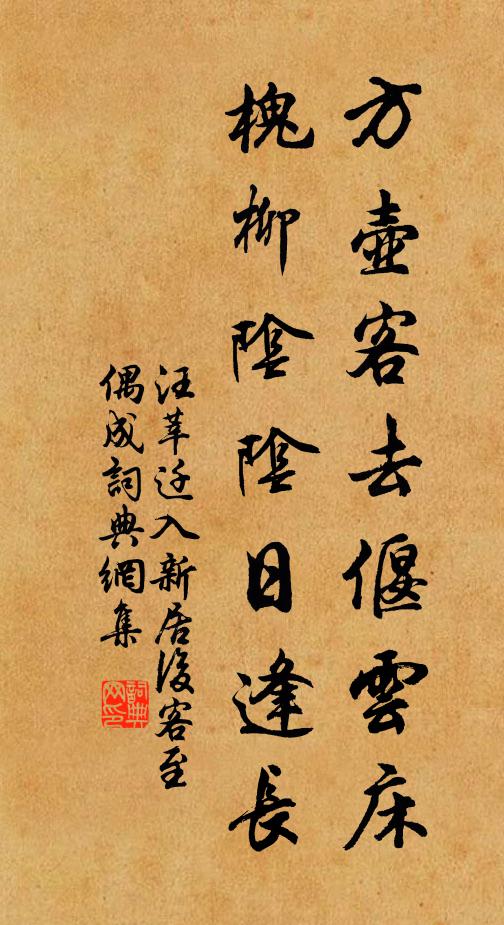 方壺客去偃雲床
槐柳陰陰日逢長
汪莘迁入新居後客至
偶成詞典網集
詞典网印